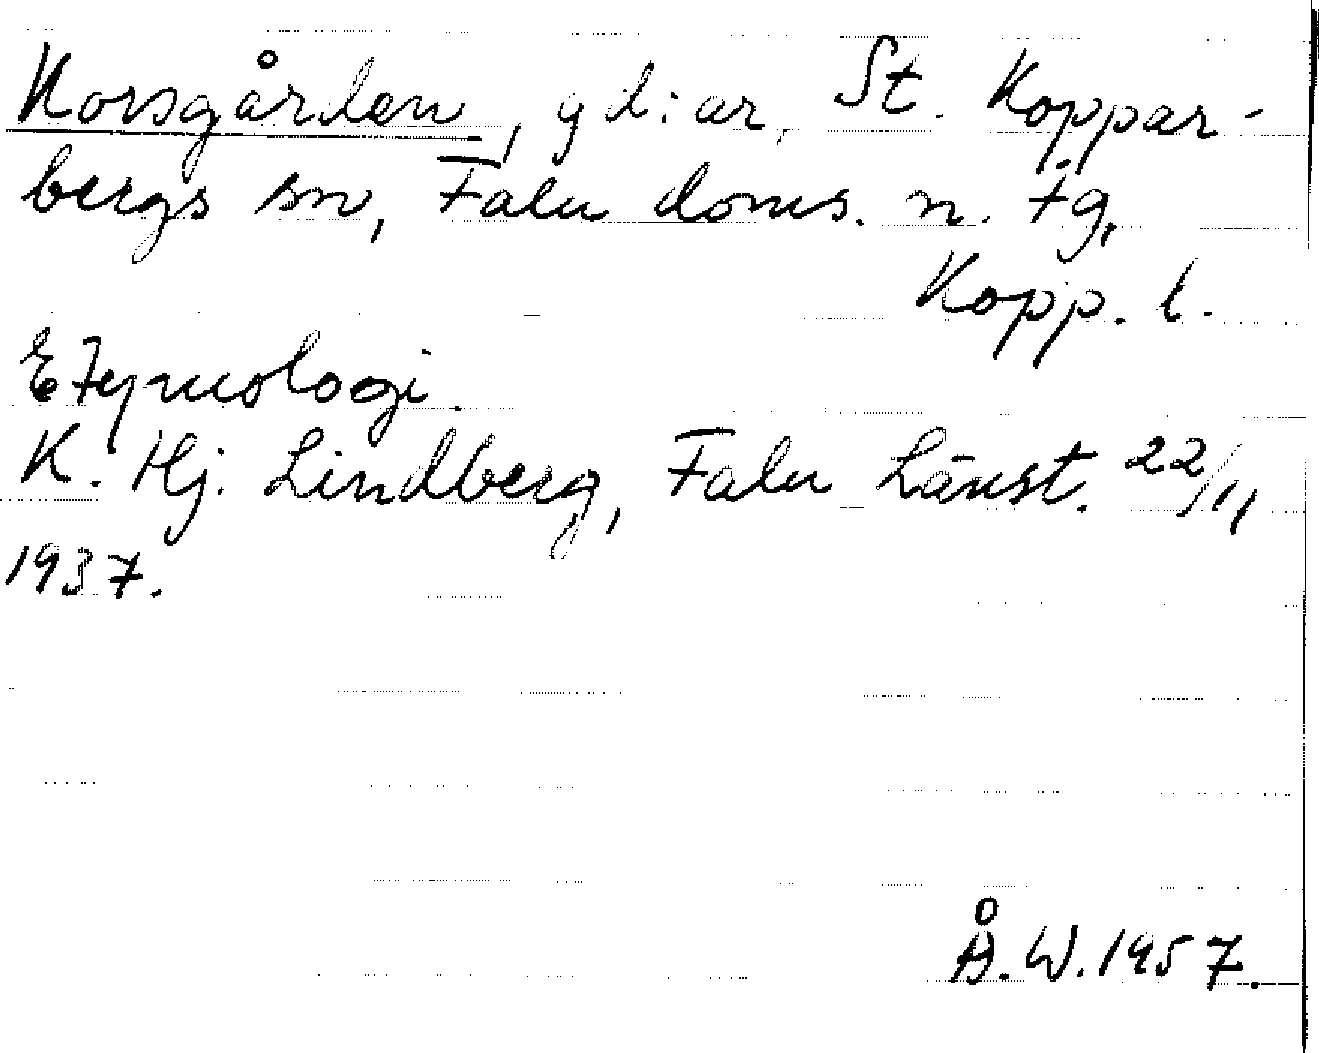 Korsgården, gd:ar, St. Koppar-
bergs sn, Falu doms. n. tg,
Kopp. l.
Etymologi.
K. Hj. Lindberg, Falu Länst. 22/11
1937.
Å.W.1957.